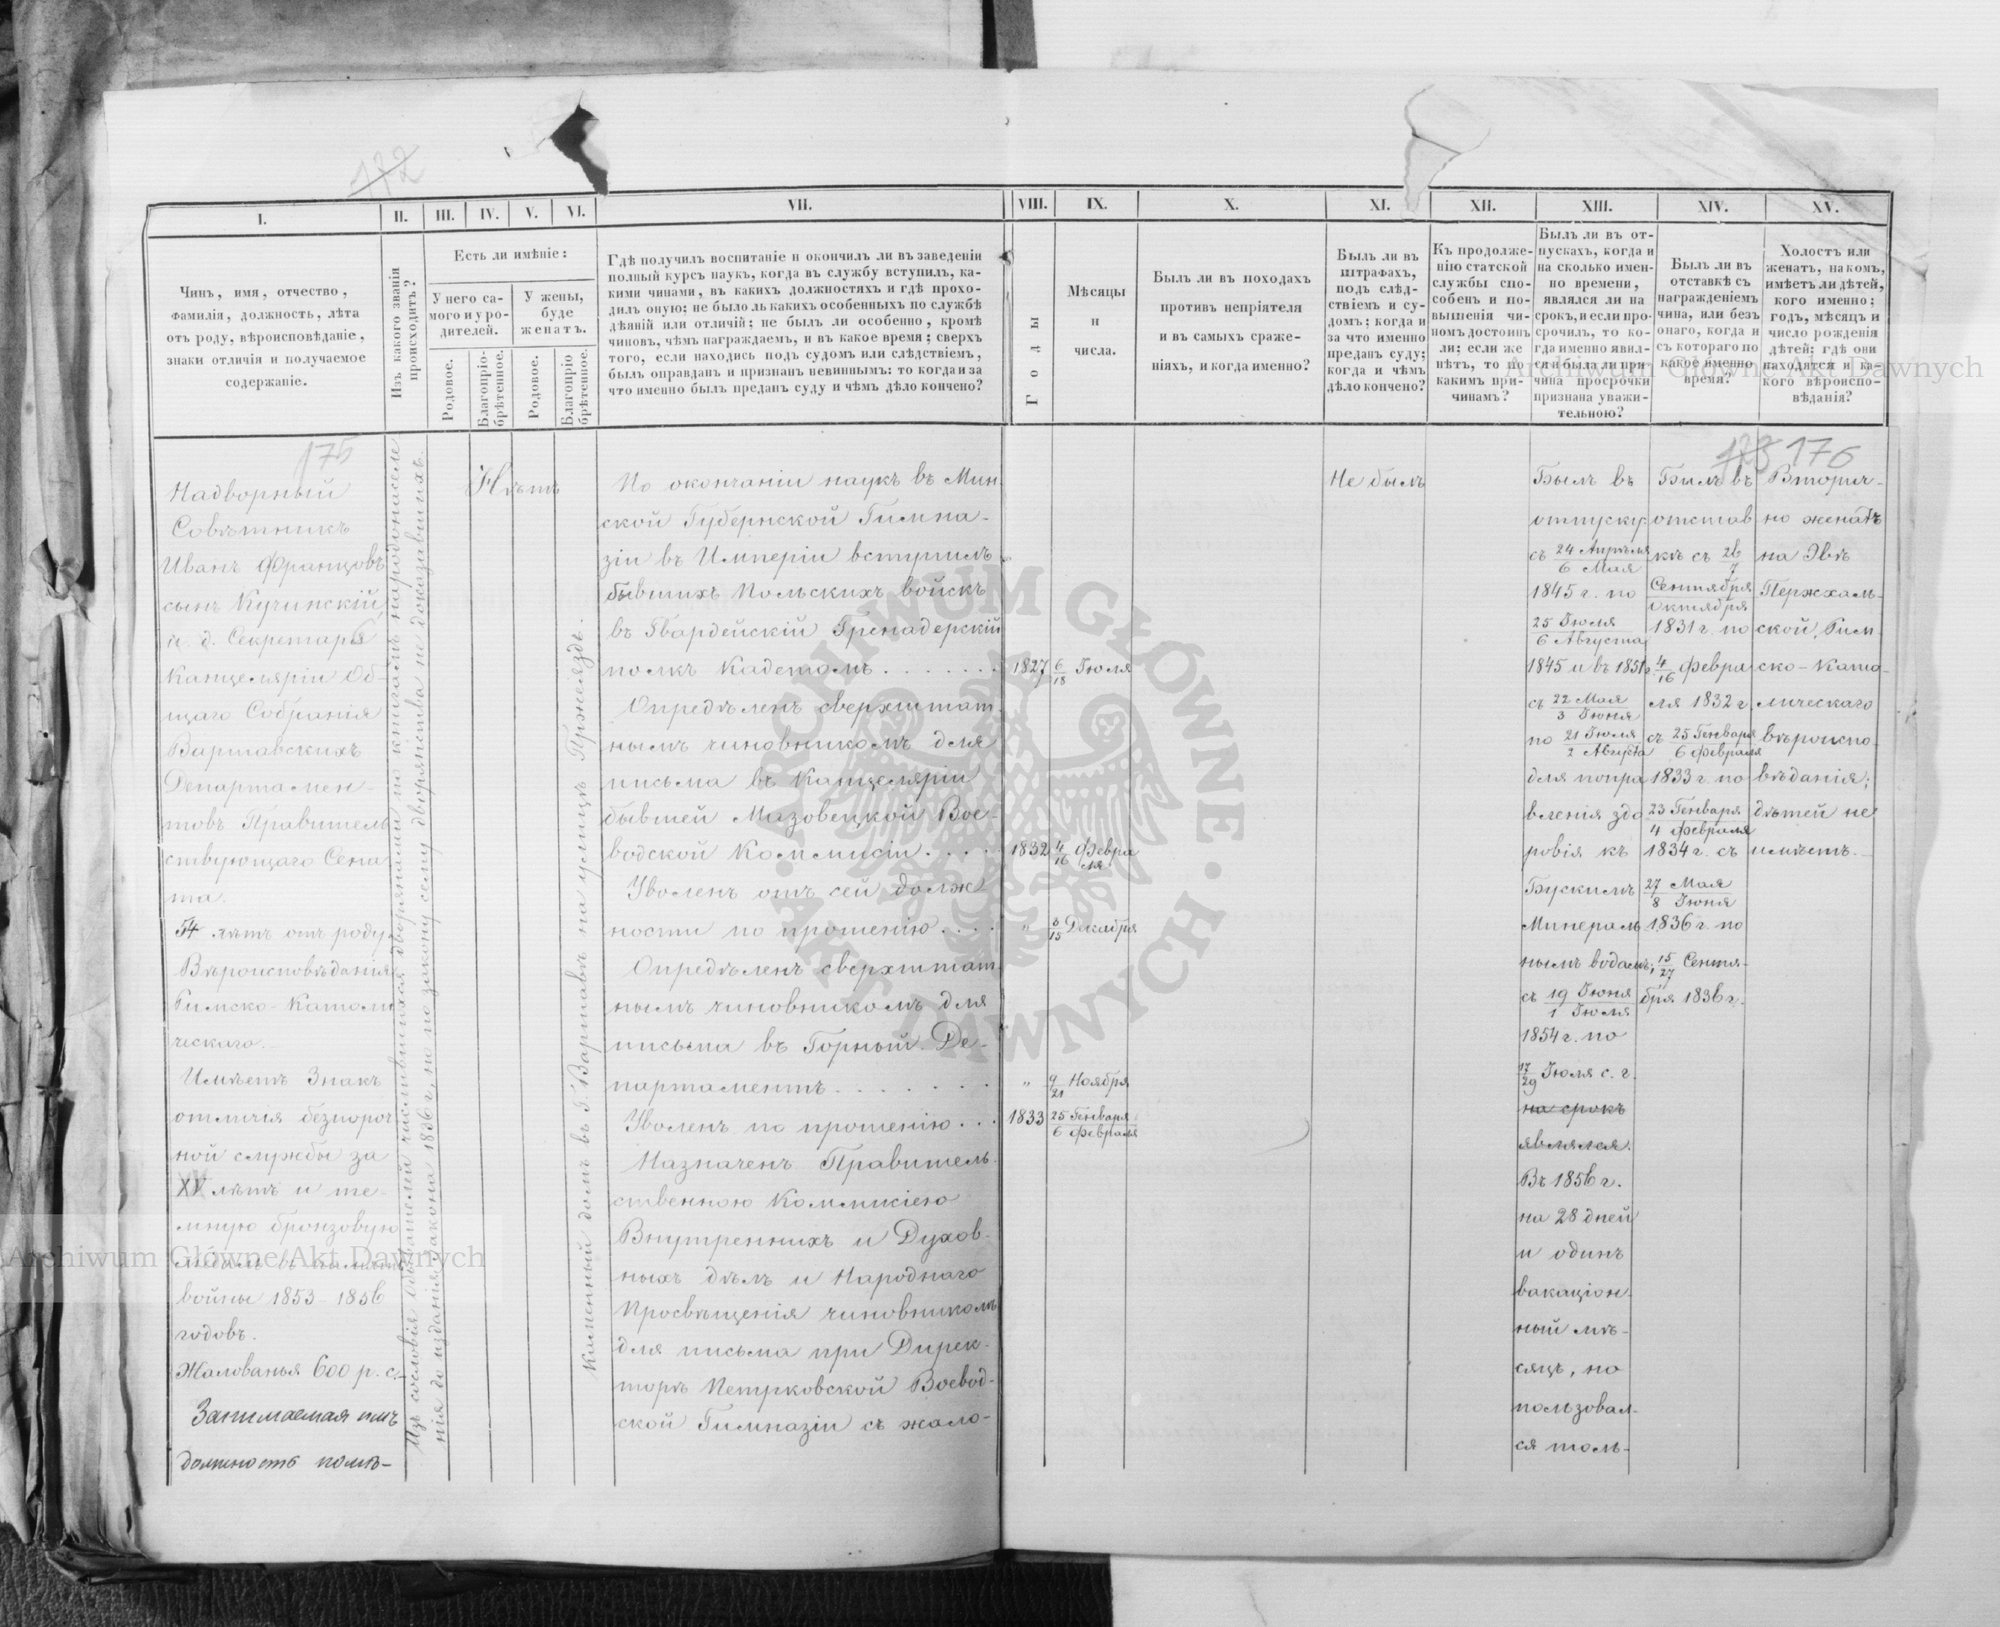 172
I.
II.
III.
IV.
V.
VI.
VII.
VIII.
IX.
X.
XI.
XII.
XIII.
XIV.
XV.
Чинъ, имя, отчество,
фамилія, должность, лѣта
отъ роду, вѣроисповѣданіе,
знаки отличія и получаемое
содержаніе.
Изъ какого званія
происходитъ?
Есть ли имѣніе:
У него са-
мого и у ро-
дителей.
У жены,
буде
женатъ.
Родовое.
Благопріо-
брѣтенное.
Родовое.
Благопріо
брѣтенное.
Гдѣ получилъ воспитаніе и окончилъ ли въ заведеніи
полный курсъ наукъ, когда въ службу вступилъ, ка-
кими чинами, въ какихъ должностяхъ и гдѣ прохо-
дилъ оную; не было ль какихъ особенныхъ по службѣ
дѣяній или отличій; не былъ ли особенно, кромѣ
чиновъ, чѣмъ награждаемъ, и въ какое время; сверхъ
того, если находись подъ судомъ или слѣдствіемъ,
былъ оправданъ и признанъ невиннымъ: то когда и за
что именно былъ преданъ суду и чѣмъ дѣло кончено?
Годы
Мѣсяцы
и
числа.
Былъ ли въ походахъ
противъ непріятеля
и въ самыхъ сраже-
ніяхъ, и когда именно?
Былъ ли въ
штрафахъ,
подъ слѣд-
ствіемъ и су-
домъ; когда и
за что именно
преданъ суду;
когда и чѣмъ
дѣло кончено?
Къ продолже-
нію статской
службы спо-
собенъ и по-
вышенія чи-
номъ достоинъ
ли; если же
нѣтъ, то по
какимъ при-
чинамъ?
Былъ ли въ от-
пускахъ, когда и
на сколько имен-
но времени,
являлся ли на
срокъ, и если про-
срочилъ, то ко-
гда именно явил-
ся и была ли при
чина просрочки
признана уважи-
тельною?
Былъ ли въ
отставкѣ съ
награжденіемъ
чина, или безъ
онаго, когда и
съ котораго по
какое именно
время?
Холостъ или
женатъ, на комъ,
имѣетъ ли дѣтей,
кого именно;
годъ, мѣсяцъ и
число рожденія
дѣтей; гдѣ они
находятся и ка-
кого вѣроиспо-
вѣданія?
175
Надворный
Совѣтникъ
Иванъ Францовъ
сынъ Кучинскій,
и. д. Секретаря
Канцеляріи Об-
щаго Собранія
Варшавскихъ
Департамен-
товъ Правитель
ствующаго Сена
та.
54 лѣтъ отъ роду
Вѣроисповѣданія
Римско-Католи
ческаго.
Имѣетъ Знакъ
отличія безпороч
ной службы за
XV лѣтъ и те-
мную бронзовую
медаль въ память
войны 1853-1856
годовъ.
Жалованья 600 р. с.
Занимаемая имъ
должность помѣ-
Изъ сословія обывателей числившихся дворянами по книгамъ народонаселе
нія до изданія закона 1836 г., но по закону сему дворянства не доказавшихъ.
Нѣтъ
Каменный домъ въ Г. Варшавѣ на улицѣ Пржеяздъ.
По окончаніи наукъ въ Мин
ской Губернской Гимна-
зіи въ Имперіи вступилъ
бывшихъ Польскихъ войскъ
въ Гвардейскій Гренадерскій
полкъ Кадетомъ . . . . . . .
Опредѣленъ сверхштат
нымъ чиновникомъ для
письма въ Канцелярію
бывшей Мазовецкой Вое-
водской Коммисіи . . . .
Уволенъ отъ сей долж
ности по прошенію . . . .
Опредѣленъ сверхштат
нымъ чиновникомъ для
письма въ Горный Де-
партаментъ . . . . . . .
Уволенъ по прошенію . . .
Назначенъ Правитель
ственною Коммисіею
Внутреннихъ и Духов-
ныхъ дѣлъ и Народнаго
Просвѣщенія чиновникомъ
для письма при Дирек-
торѣ Петрковской Воевод-
ской Гимназіи съ жало-
1827 6/18 Іюля
1832 4/16 Февра
ля
" 3/15 Декабря
" 9/21 Ноября
1833 25 Генваря
6 Февраля
Не былъ
Былъ въ
отпуску:
съ 24 Апрѣля
6 Мая
1845 г. по
25 Іюля
6 Августа
1845 и въ 1851 г.
съ 22 Мая
3 Іюня
по 21 Іюля
2 Августа
для попра
вленія здо
ровія къ
Бускимъ
Минераль
нымъ водамъ;
съ 19 Іюня
1 Іюля
1854 г. по
17/29 Іюля с. г.
на срокъ
являлся.
Въ 1856 г.
на 28 дней
и одинъ
вакаціон
ный мѣ-
сяцъ, но
пользовал-
ся толь-
128 176
Былъ въ
отстав
кѣ съ 26/7
Сентября
Октября
1831 г. по
4/16 Февра
ля 1832 г.
съ 25 Генваря
6 Февраля
1833 г. по
23 Генваря
4 Февраля
1834 г. съ
27 Мая
8 Іюня
1836 г. по
15/27 Сентя-
бря 1836 г.
Вторич-
но женатъ
на Эвѣ
Пержхаль-
ской, Рим-
ско-Като-
лическаго
вѣроиспо-
вѣданія;
дѣтей не
имѣетъ.
Archiwum Główne Akt Dawnych
Archiwum Główne Akt Dawnych
ARCHIWUM GŁÓWNE · AKT DAWNYCH ·